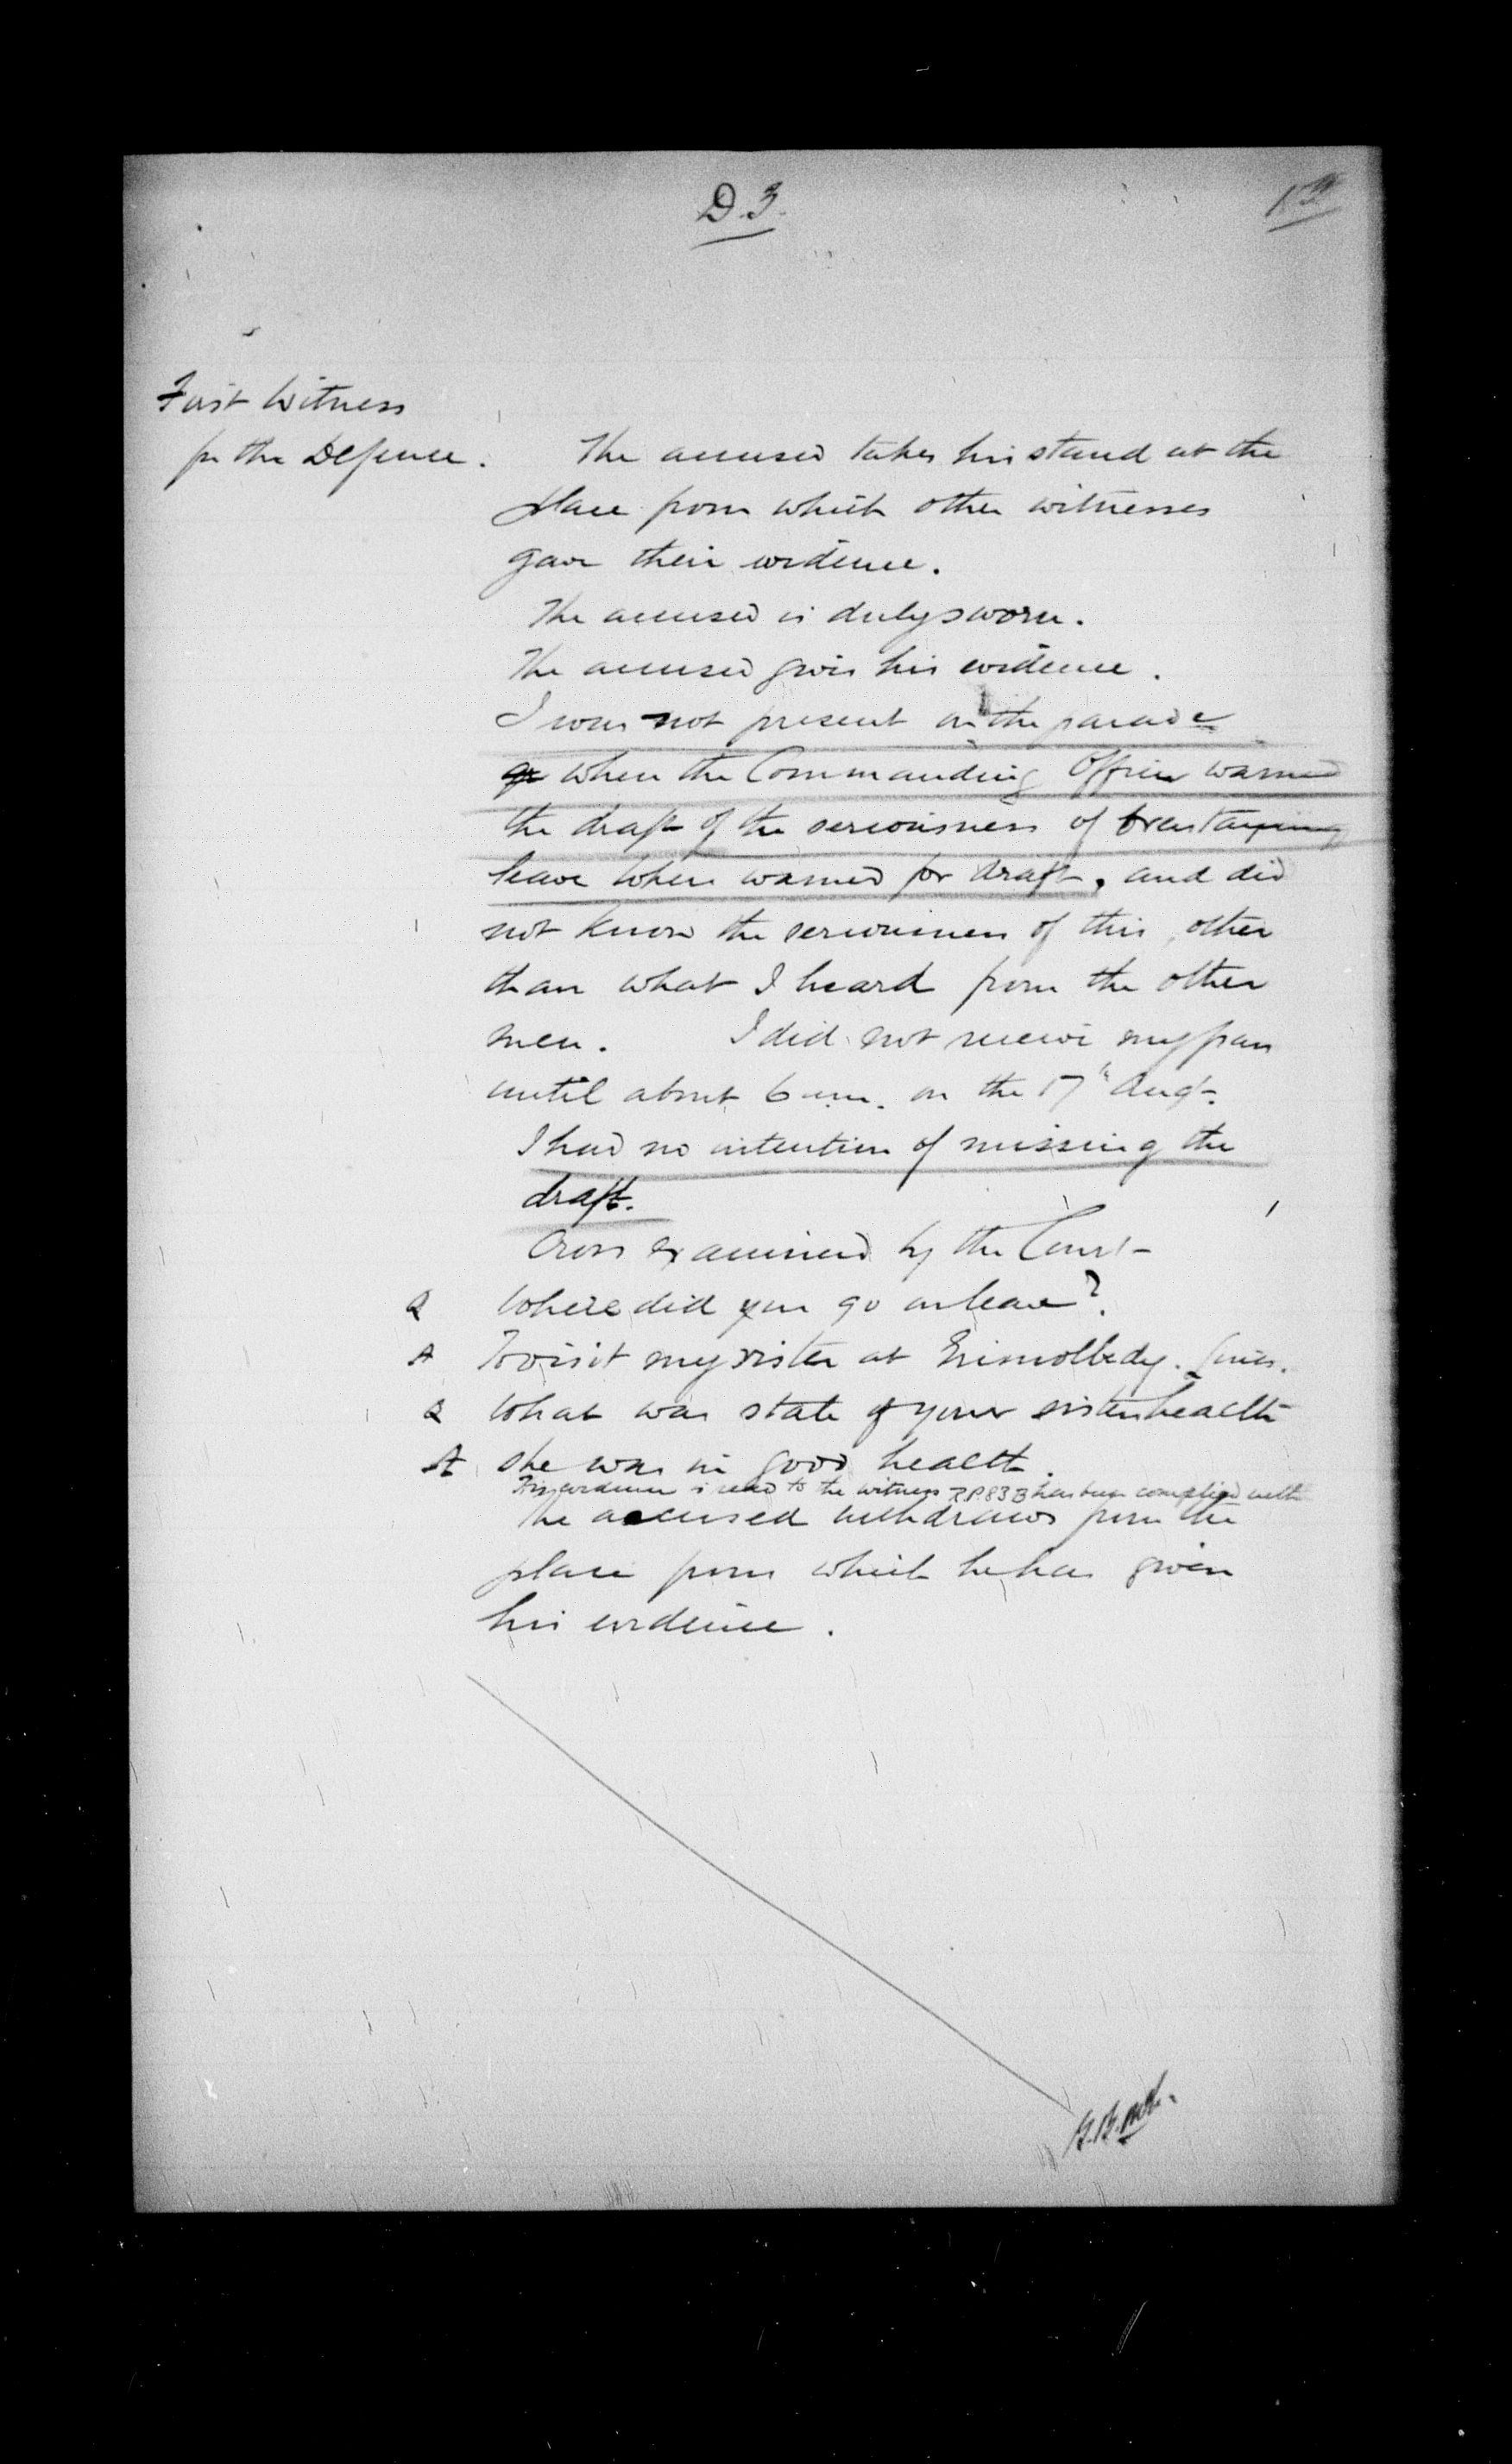 D.3.
First Witness
for the Defence.
The accused takes his stand at the
place from which other witnesses
gave their evidence.
The accused is duly sworn.
The accused gives his evidence.
I was not present on the parade
when the Commanding Officer warned
the draft of the seriousness of overstaying
leave when warned for draft, and did
not know the seriousness of this other
than what I heard from the other
men. I did not receive my pass
until about 6 a.m. on the 17th Augt.
I had no intention of missing the
draft.
Cross examined by the Court
Q Where did you go on leave?
A To visit my sister at Lincs.
Q What was state of your sisters health
A She was in good health.
His evidence is read to the witness R.P. 83 B has been complied with
The accused withdraws from the
place from which he has given
his evidence.